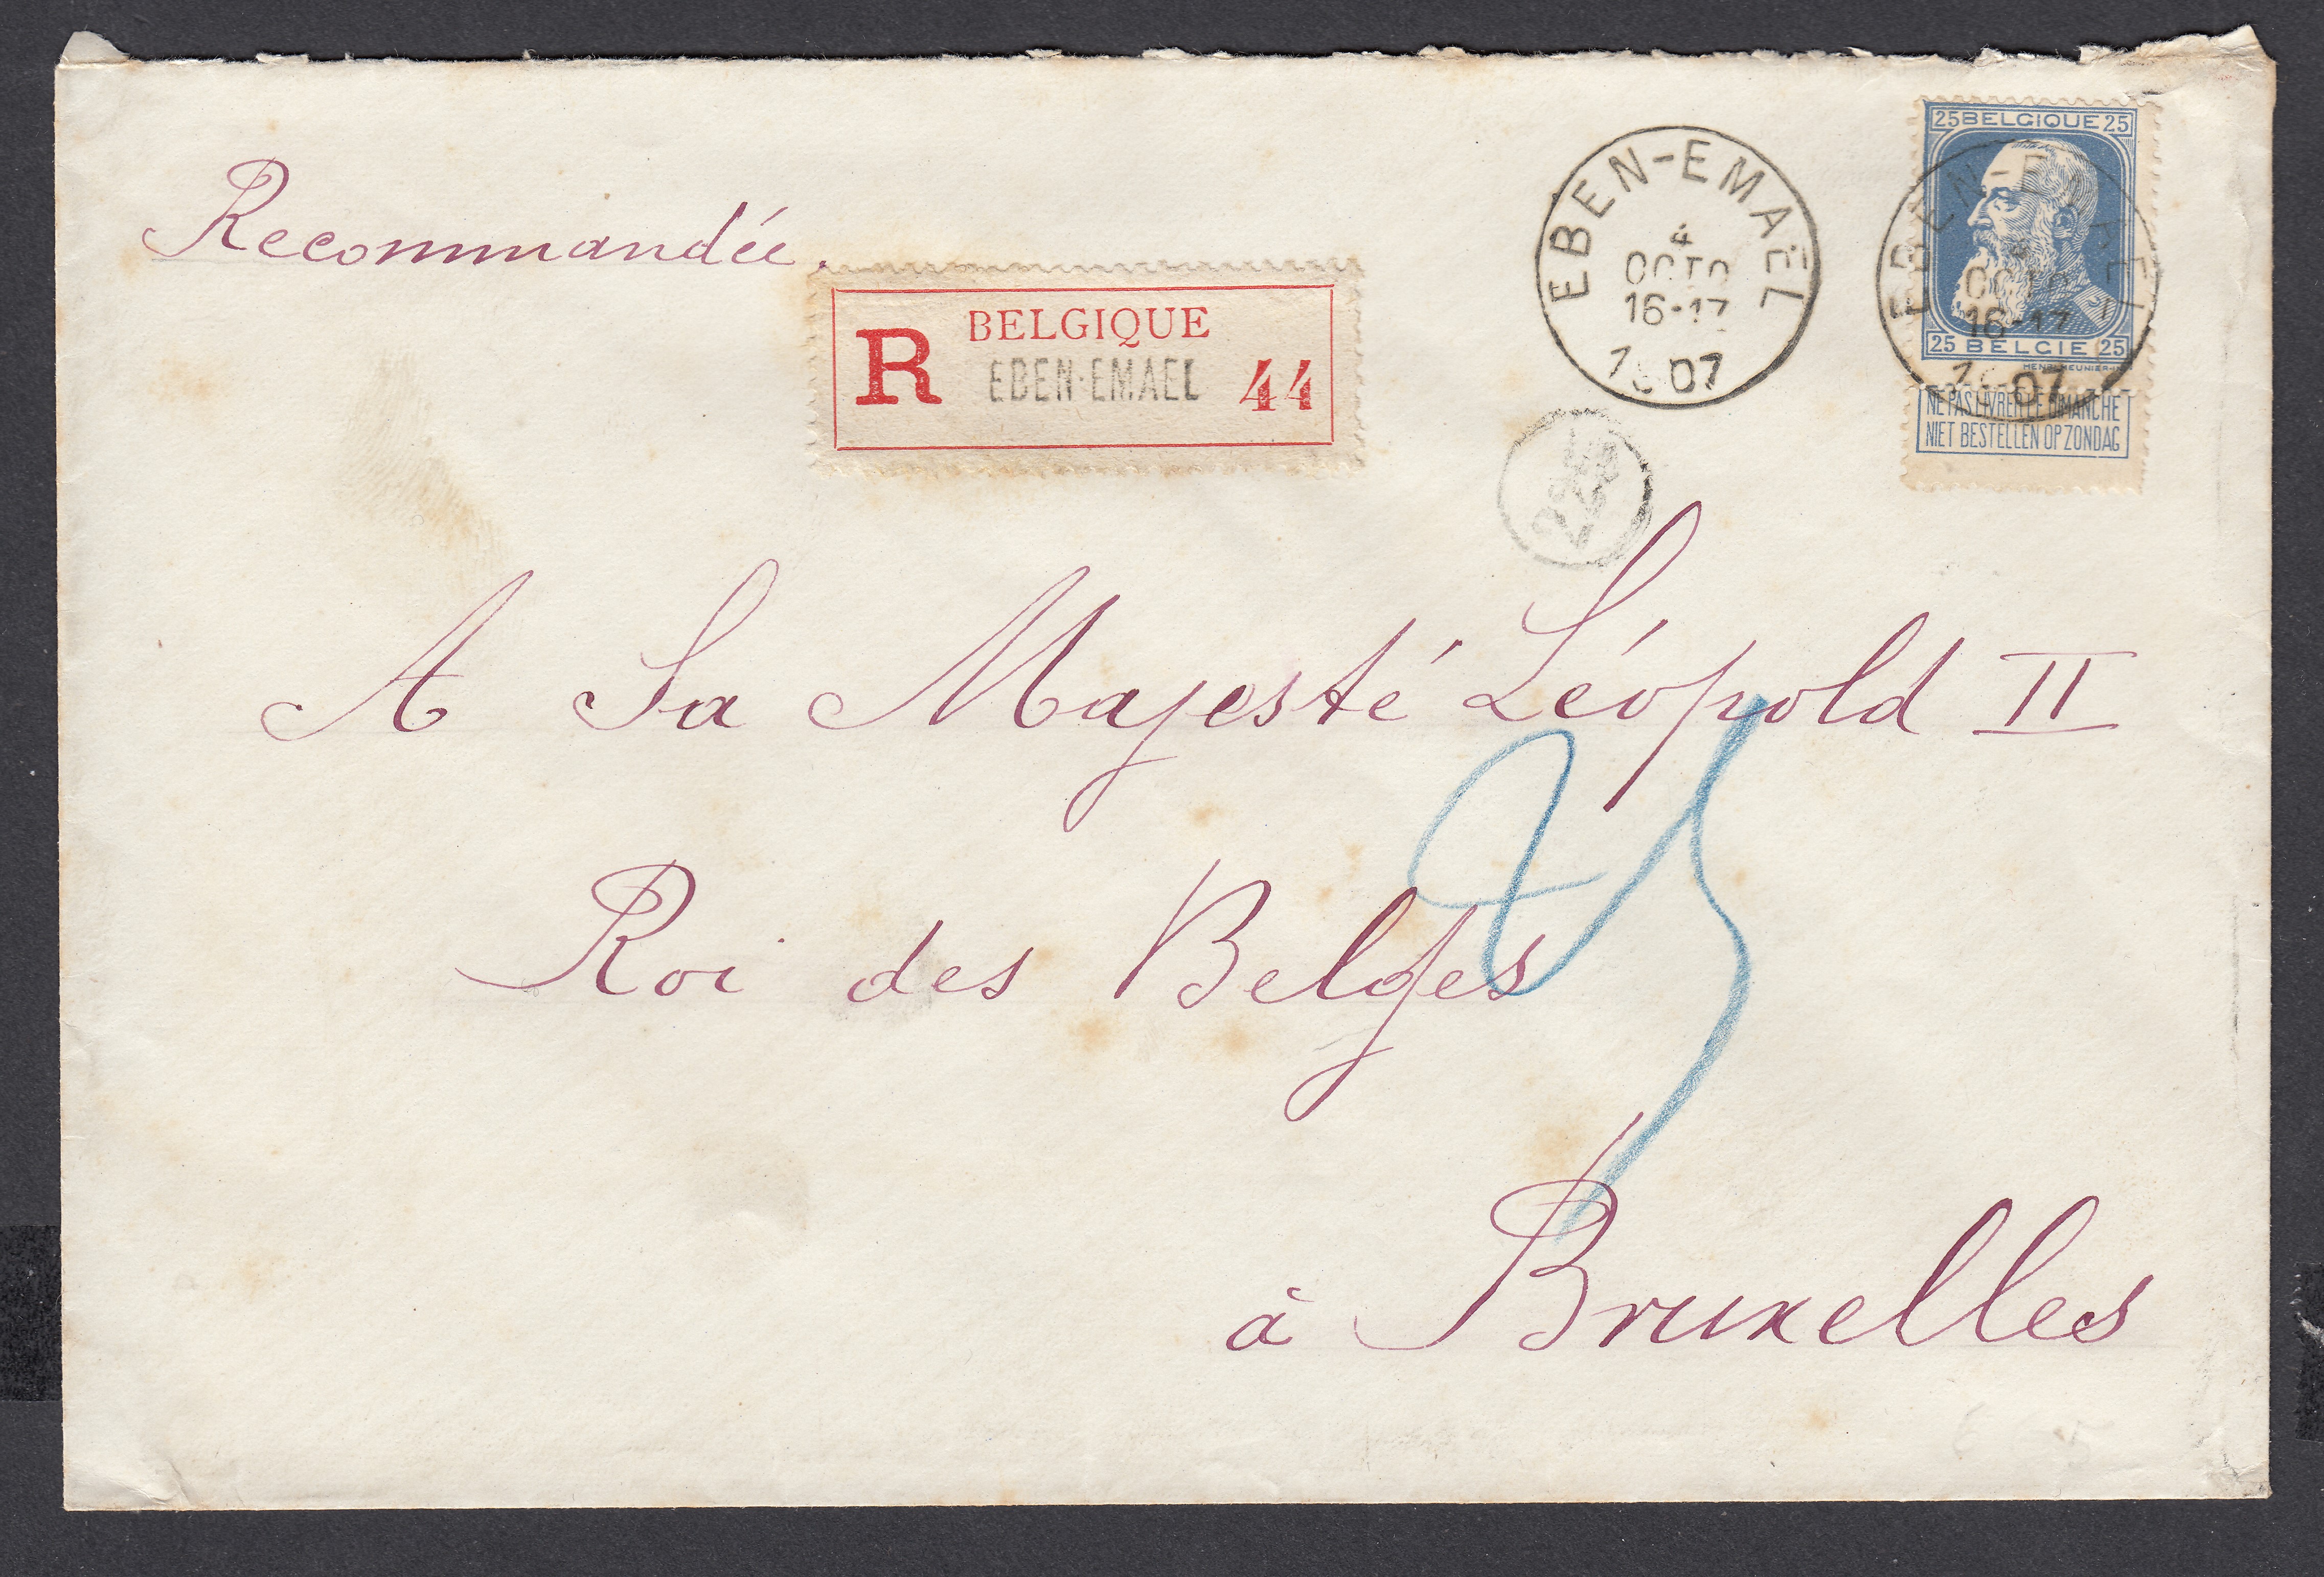 Recommandée.
BELGIQUE
R EBEN-EMAEL 44
EBEN-EMAËL
4
OCTO
16-17
1907
25 BELGIQUE 25
25 BELGIE 25
EBEN-EMAËL
4
OCTO
16-17
1907
NE PAS LIVRER LE DIMANCHE
NIET BESTELLEN OP ZONDAG
A Sa Majesté Léopold II
Roi des Belges
à Bruxelles